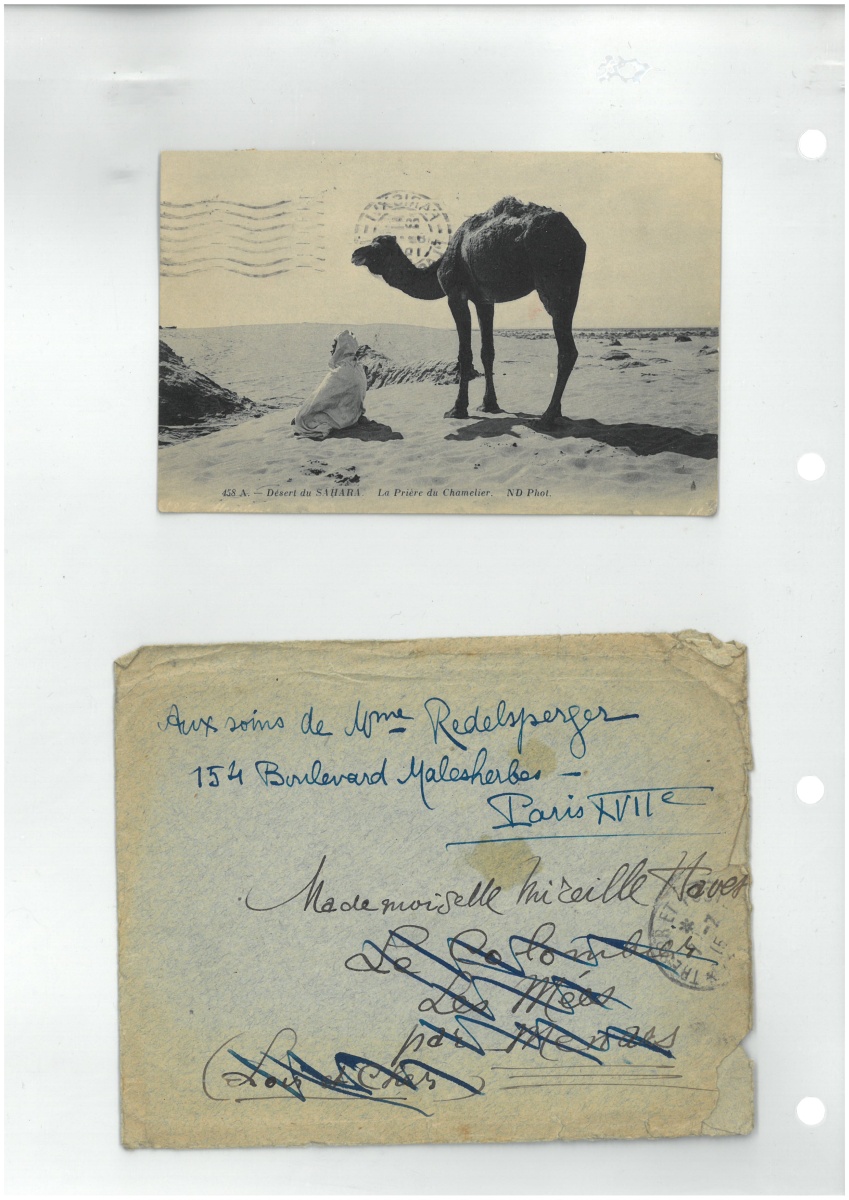 458 A. — Désert du SAHARA. La Prière du Chamelier. ND Phot.
Aux soins de Mme Redelsperger
154 Boulevard Malesherbes —
Paris XVIIe
Mademoiselle Mireille Havet
Le Colombier
Les Mées
par Menars
(Loir et Cher)
TRESOR ET
* 15-7